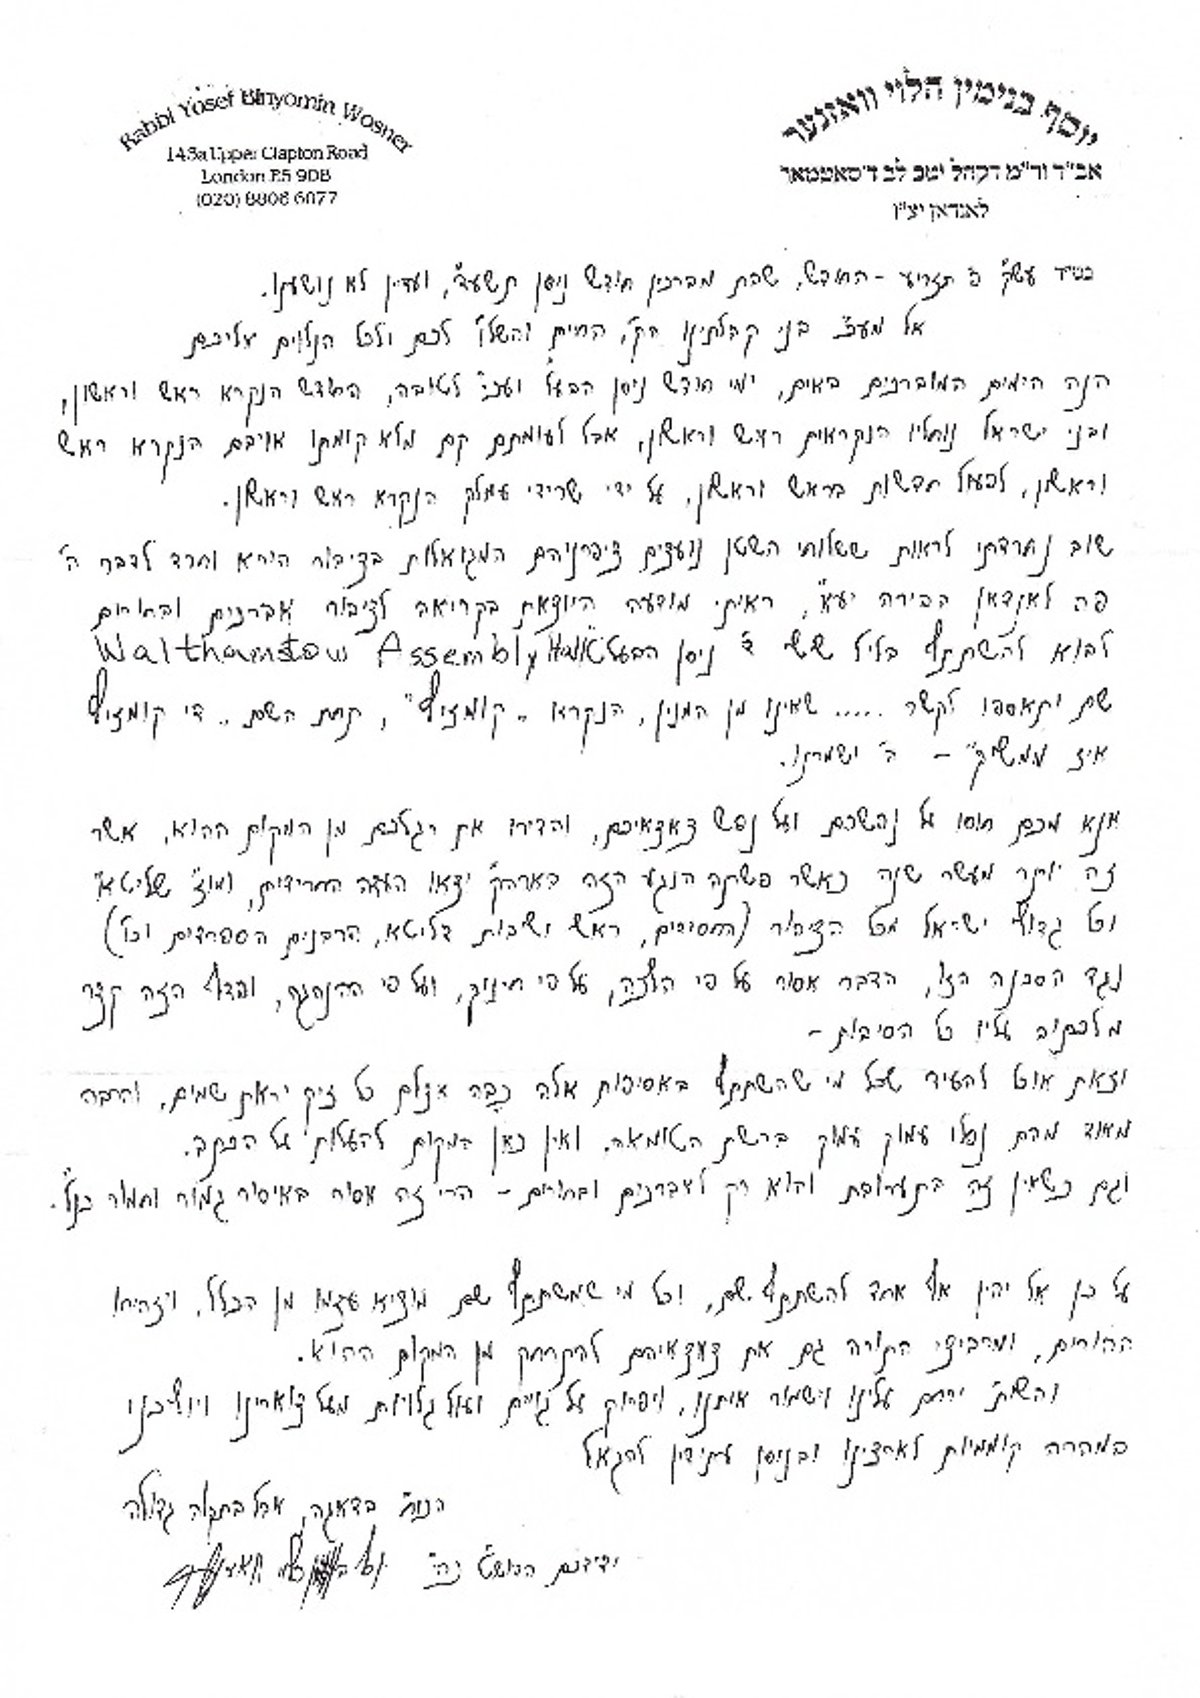 Rabbi Yosef Binyomin Wosner
148a Upper Clapton Road
London E5 9DB
(020) 8806 6077
יוסף בנימין הלוי וואזנער
אב"ד ור"מ דקהל יטב לב ד'סאטמאר
לאנדאן יצ"ו
בס"ד עש"ק פ' תזריע - החודש, שבת מברכין חודש ניסן תשע"ד, ועדין לא נושענו.
אל מע"כ בני קהלתינו הק', החיים והשלו' לכם ולכל הנלוים אליכם
הנה הימים המוברכים באים, ימי חודש ניסן הבעל"ט ועכ"י לטובה, החודש הנקרא ראש וראשון,
ובני ישראל נוחליו הנקראים ראש וראשון, אבל לעומתם קם מלא קומתו אויבם הנקרא ראש
וראשון, לפעול חדשות בראש וראשון, על ידי שרידי עמלק הנקרא ראש וראשון.
שוב נחרדתי לראות ששלוחי השטן נועצים ציפרניהם המגואלות בציבור הירא וחרד לדבר ה'
פה לאנדאן הבירה יע"א, ראיתי מודעה היוצאת בקריאה לציבור אברכים ובחורים
לבוא להשתתף בליל ששי ד' ניסן הבעל"ט Walthamstow Assembly Hall
שם יתאספו לקשר ..... שאינו מן המנין, הנקרא "קומזיץ", קחת השם "די קומזיץ
איז ממשיך" - ה' ישמרנו.
אנא מכם חוסו על נפשכם ועל נפש צאצאיכם, והדירו את רגלכם מן המקום ההוא, אשר
זה יותר מעשר שנה כאשר פשתה הנגע הזה בארה"ק יצאו העדה החרידית, ומו"צ שליט"א
וכל גדולי ישראל מכל הציבור (החסידים, ראשי ישיבות דליטא, הרבנים הספרדים וכו')
נגד הסכנה הזו, הדבר אסור על פי הלכה, על פי חינוך, ועל פי ההנהגה, והדף הזה קצר
מלכתוב עליו כל הסיבות -
וזאת אוכל להעיד שכל מי שהשתתף באסיפות אלה כבה אצלם כל זיק יראת שמים, והרבה
מאוד מהם נפלו עמוק עמוק ברשת הטומאה. ואין כאן המקום להעלות על הכתב.
וגם כשאין זה בתערובת והוא רק לאברכים ובחורים - הרי זה אסור באיסור גמור וחמור כנ"ל.
על כן אל יהין אף אחד להשתתף שם, וכל מי שמשתתף שם מוציא עצמו מן הכלל, ויזהירו
ההורים, ומרביצי התורה גם את צאצאיהם להתרחק מן המקום ההוא.
והשי"ת ירחם עלינו וישמור אותנו, ויפרוק עול גוים ועול גלויות מעל צוארינו ויוליכנו
במהרה קוממיות לארצינו ובניסן עתידין להגאל
הכו"ח בדאגה, אבל בתקוה גדולה
ידידכם הכוש"ט כה"י